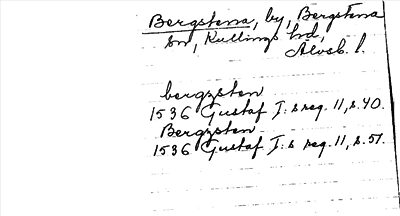 Bergstena, by, Bergstena
sn, Kullings hd,
Älvsb. l.
bergzsten
1536 Gustaf I:s reg. 11, s. 40.
Bergzsten
1536 Gustaf I:s reg. 11, s. 51.